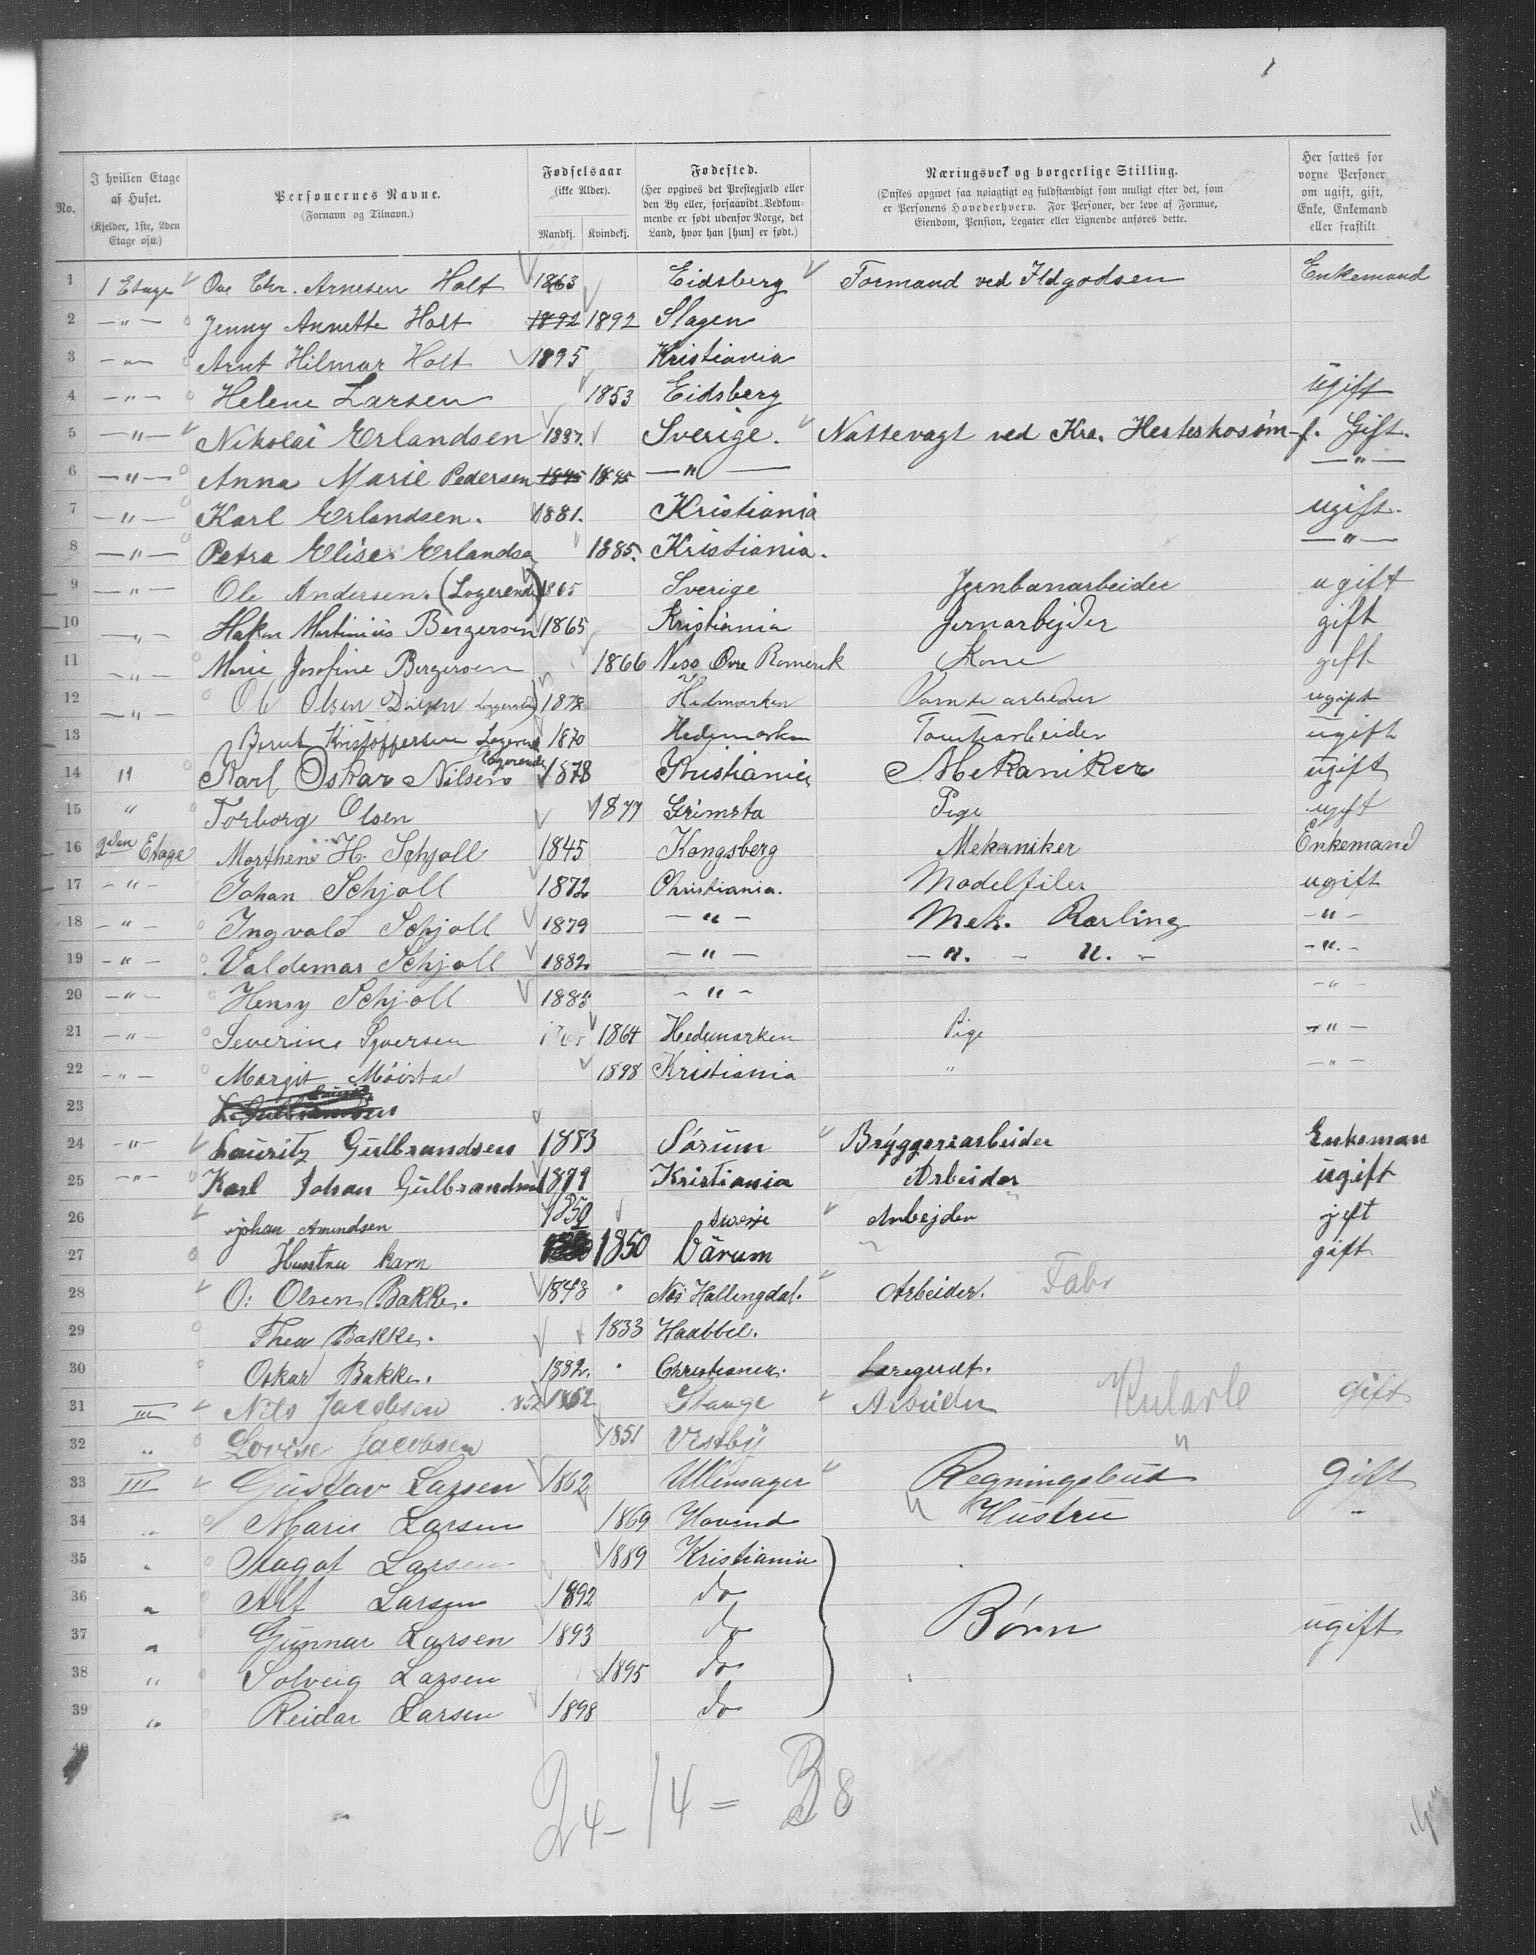 1
No. | I hvilken Etage af Huset. (Kjelder, 1ste, 2den Etage osv.) | Personernes Navne. (Fornavn og Tilnavn.) | Fødselsaar (ikke Alder). Mandkj. | Kvindekj. | Fødested. (Her opgives det Prestegjæld eller den By eller, forsaavidt Vedkommende er født udenfor Norge, det Land, hvor han [hun] er født.) | Næringsvei og borgerlige Stilling. (Ønskes opgivet saa nøiagtigt og fuldstændigt som muligt efter det, som er Personens Hovederhverv. For Personer, der leve af Formue, Eiendom, Pension, Legater eller Lignende anføres dette.) | Her sættes for voxne Personer om ugift, gift, Enke, Enkemand eller fraskilt
1 | 1 Etage | Ove Chr. Arnesen Holt | 1863 | | Eidsberg | Formand ved Ildgodsen | Enkemand
2 | —"— | Jenny Annette Holt | 1892 | 1892 | Slagen
3 | —"— | Arnt Hilmar Holt | 1895 | | Kristiania
4 | —"— | Helene Larsen | | 1853 | Eidsberg | | ugift
5 | —"— | Nikolai Erlandsen | 1837. | | Sverige. | Nattevagt ved Kra. Hesteskosøm-f. | Gift.
6 | —"— | Anna Marie Pedersen | 1845 | 1845 | —"— | | —"—
7 | —"— | Karl Erlandsen. | 1881. | | Kristiania | | ugift.
8 | —"— | Petra Elise Erlandsen | | 1885. | Kristiania. | | —"—
9 | —"— | Ole Andersen. (Logerende) | 1865 | | Sverige | Jernbanarbeider | ugift
10 | —"— | Hakon Martinius Bergersen | 1865 | | Kristiania | Jernarbejder | gift
11 | —"— | Marie Josefine Bergersen | | 1866 | Ness Øvre Romerik | Kone | gift
12 | —"— | Ole Olsen | 1878 | | Hedmarken | arbeider | ugift
13 | Bernt Kristoffersen Logerende | 1870 | | Hedemarken | Tomtearbeider | ugift
14 | " | Karl Oskar Nilsen Logerende | 1878 | | Kristiania | Mekaniker | ugift
15 | " | Torborg Olsen | | 1877 | Grimsta | Pige | ugift
16 | 2den Etage | Morthen H. Schjoll | 1845 | | Kongsberg | Mekaniker | Enkemand
17 | -"- | Johan Schjoll | 1872 | | Christiania. | Modelfiler | ugift
18 | -"- | Ingvald Schjoll | 1879 | | -"- | Mek. Rarling | -"-
19 | -"- | Valdemar Schjoll | 1882 | | -"- | -"- -"- | -"-
20 | -"- | Henry Schjoll | 1885 | | -"- | | -"-
21 | -"- | Severine Syversen | | 1864 | Hedemarken | Pige | -"-
22 | -"- | Margit Möistad | | 1898 | Kristiania | " | -"-
23 | L. Gulbrandsen
24 | -"- | Lauritz Gulbrandsen | 1853 | | Sörum | Bryggeriarbeider | Enkeman
25 | -"- | Karl Johan Gulbrandsen | 1879 | | Kristiania | Arbeider | ugift
26 | johan Amundsen | 1850 | | Sverje | Arbejder | gift
27 | Hustru karn | | 1850 | Bärum | | gift
28 | O: Olsen Bakke. | 1843 | | Nes Hallingdal. | Arbeider. Fabr
29 | Thea Bakke. | | 1833 | Haabbel.
30 | Oskar Bakke. | 1882. | | Christiania. | Læregudt.
31 | III | Nils Jacobsen | 852 1852 | | Stange | Arbeider | gift
32 | " | Lovise Jacobsen | | 1851 | Vestby | "
33 | III | Gustav Larsen | 1862 | | Ullensager | Regningsbud | Gift
34 | " | Marie Larsen | | 1869 | Hovind | " Hustru | "
35 | " | Magot Larsen | | 1889 | Kristiania
36 | " | Alf Larsen | 1892 | | do
37 | " | Gunnar Larsen | 1893 | | do | Børn | ugift
38 | " | Solveig Larsen | | 1895 | do
39 | " | Reidar Larsen | 1898 | | do
40
24-14=38